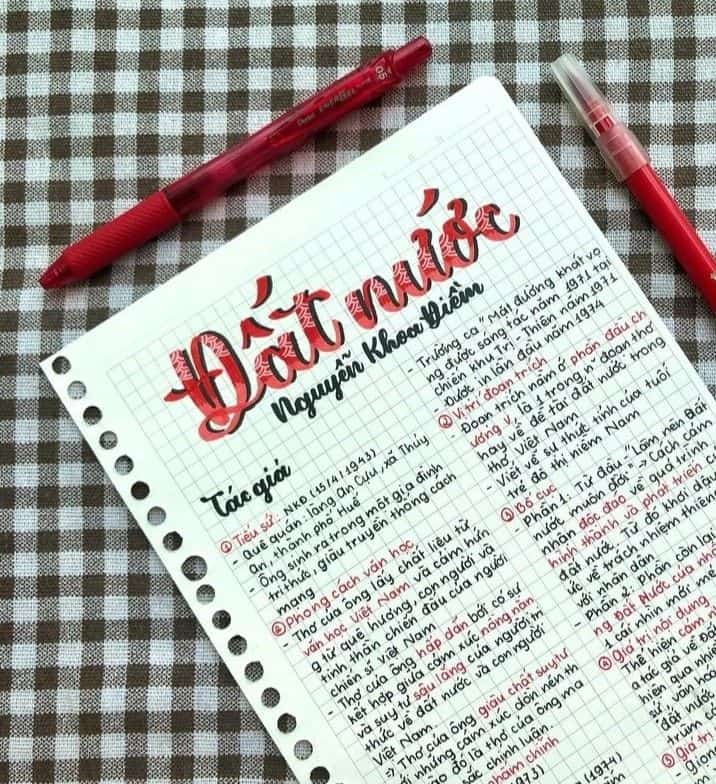 Pentel ENERGEL
05
Đất nước
Nguyễn Khoa Điềm
Tác giả
① Tiểu sử: NKĐ (15/4/1943)
- Quê quán: làng An Cựu, xã Thủy
An, thành phố Huế
- Ông sinh ra trong một gia đình
trí thức, giàu truyền thống cách
mạng
② Phong cách văn học
- Thơ của ông lấy chất liệu từ
văn học Việt Nam và cảm hứn
g từ quê hương, con người và
tinh thần chiến đấu của người
chiến sĩ Việt Nam
- Thơ của ông hấp dẫn bởi có sự
kết hợp giữa cảm xúc nồng nàn
và suy tư sâu lắng của người tr
thức về đất nước và con người
Việt Nam.
⇒ Thơ của ông giàu chất suy tư
những cảm xúc dồn nén
đó là thơ của ông ma
chính luận.
phẩm chính
- Trường ca "Mặt đường khát vọ
ng được sáng tác năm 1971 tại
chiến khu Trị - Thiên năm 1971
được in lần đầu năm 1974
② Vị trí đoạn trích
- Đoạn trích nằm ở phần đầu ch
ương V, là 1 trong n đoạn thơ
hay về đề tài đất nước trong
thơ Việt Nam
- Viết về sự thức tỉnh của tuổi
trẻ đô thị miền Nam
③ Bố cục
- Phần 1: Từ đầu "Làm nên Đất
nước muôn đời" → Cách cảm
nhận độc đáo về quá trình
hình thành và phát triển c
đất nước. Từ đó khơi dậ
ức về trách nhiệm thiên
với nhân dân
- Phần 2: Phần còn lại
ng Đất Nước của nhâ
cái nhìn mới mẻ
④ Giá trị nội dung
thể hiện cảm n
tác giả về đấ
diện qua nh
sử, văn hoá
đất nước
trùm
⑤ giá trị